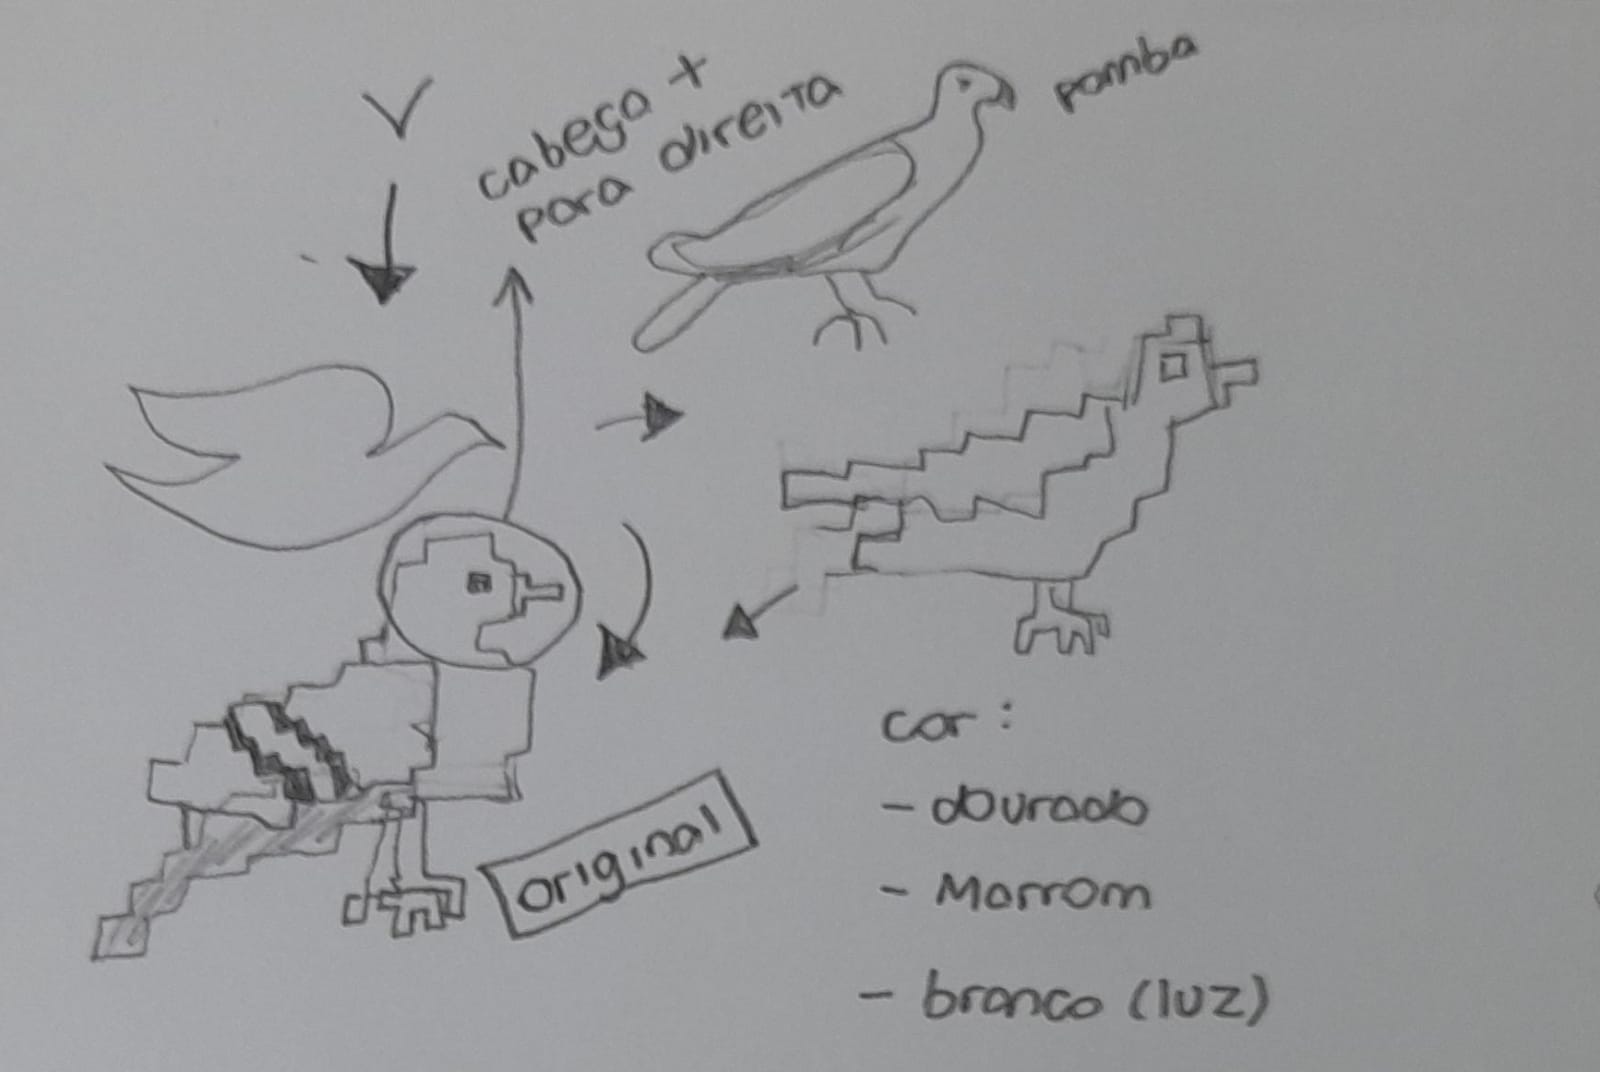 V
cabeça +
para direita
pomba
original
cor :
- dourado
- Marrom
- branco (luz)